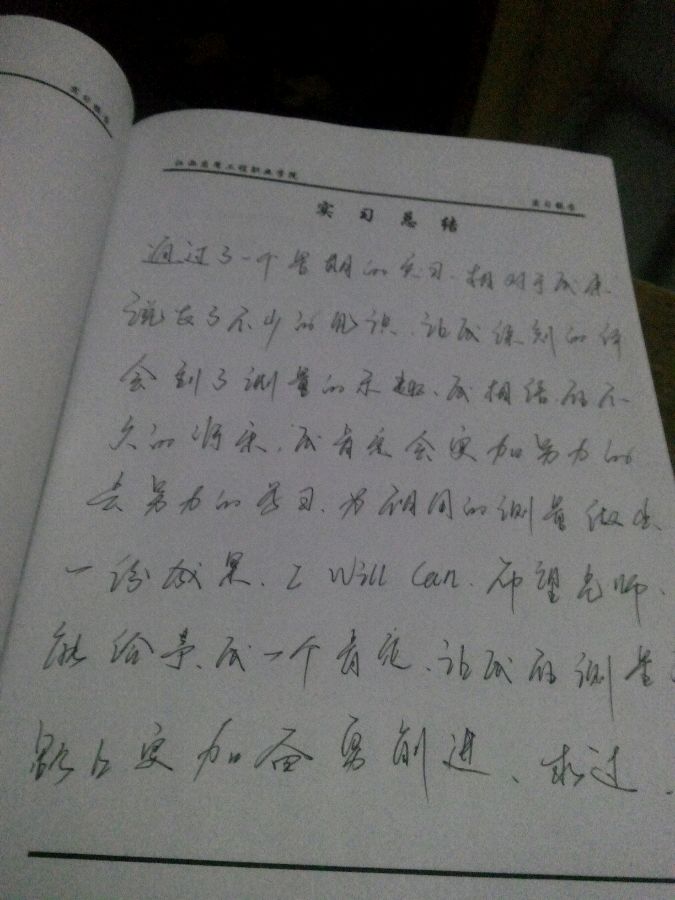 实习报告
江西应用工程职业学院
实习报告
实习总结
通过了一个暑期的实习.相对于我来
说长了不少的见识.让我深刻的体
会到了测量的乐趣.我相信在不
久的将来.我肯定会更加努力的
去努力的学习.为祖国的测量做出
一份成果.I Will Can.希望老师.
能给予.我一个肯定.让我在测量
路上更加奋勇前进、求过.